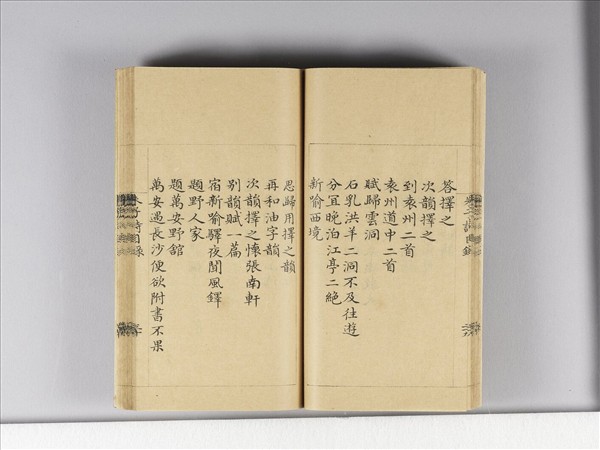 答擇之
次韻擇之
到袁州二首
袁州道中二首
賦歸雲洞
石乳洪羊二洞不及往遊
分宜晚泊江亭二絶
新喻西境
思歸用擇之韻
再和油字韻
次韻擇之懷張南軒
別韻賦一篇
宿新喻驛夜聞風鐸
題野人家
題萬安野館
萬安遇長沙便欲附書不果